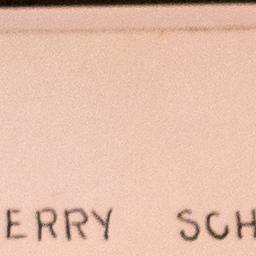 ERRY SCH